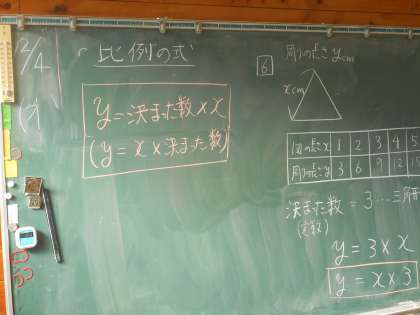 12/4
比例の式
y=決まった数×x
(y=x×決まった数)
6 周りの長さ y cm
x cm
1辺の長さx 1 2 3 4 5
周りの長さy 3 6 9 12 15
決まった数 = 3…三角形
(定数)
y = 3 × x
y = x × 3